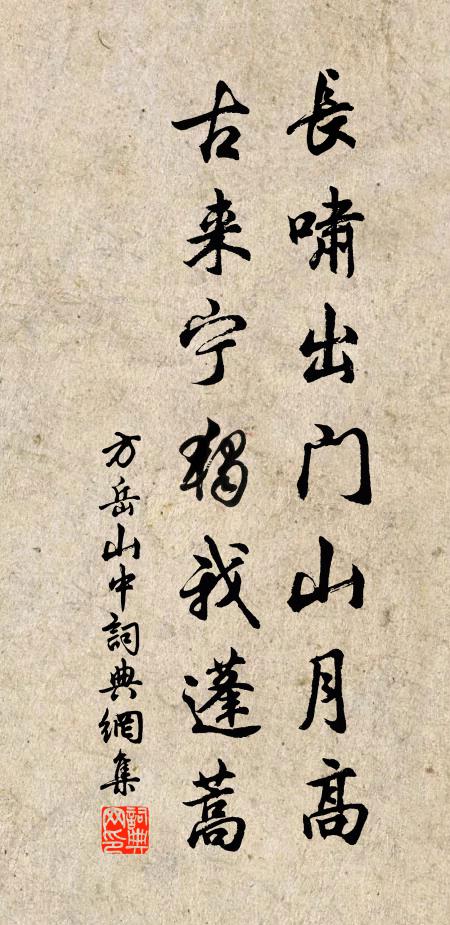 長嘯出门山月高
古来宁獨我蓬蒿
方岳山中詞典網集
詞典网印